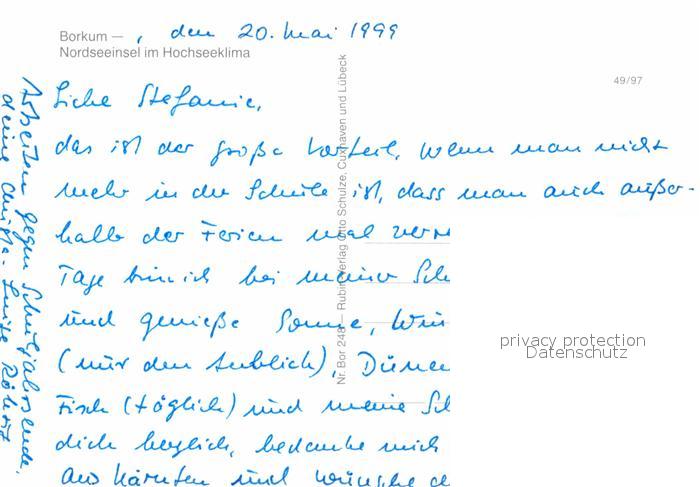 Borkum — , den 20. Mai 1999
Nordseeinsel im Hochseeklima
49/97
Liebe Stefanie,
das ist der große Vorteil, wenn man nicht
mehr in der Schule ist, dass man auch außer-
halb der Ferien mal verre
Tage bin ich bei meiner Sch
und genieße Sonne, Win
(nur den Anblick), Dünen
Fisch (täglich) und meine Sch
dich herzlich, bedanke mich
aus Kärnten und wünsche d
Arbeiten gegen Schuljahresende.
deine Christa-Luise
Nr. Bor 248 — Rubin-Verlag Otto Schulze, Cuxhaven und Lübeck
privacy protection
Datenschutz